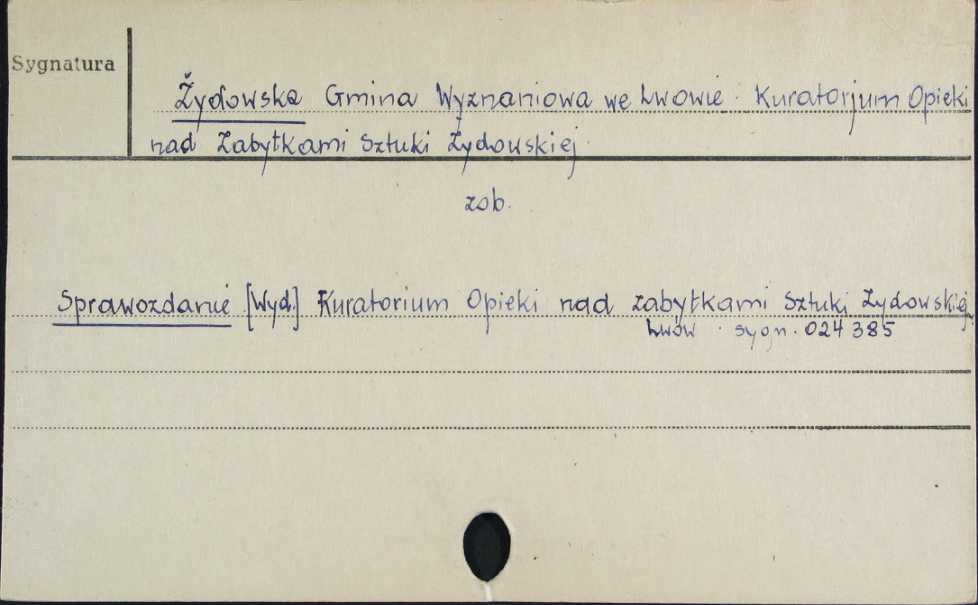 Sygnatura
Żydowska Gmina Wyznaniowa we Lwowie. Kuratorjum Opieki
nad Zabytkami Sztuki Żydowskiej.
zob.
Sprawozdanie [Wyd.] Kuratorium Opieki nad zabytkami Sztuki Żydowskiej
Lwów. sygn. 024385